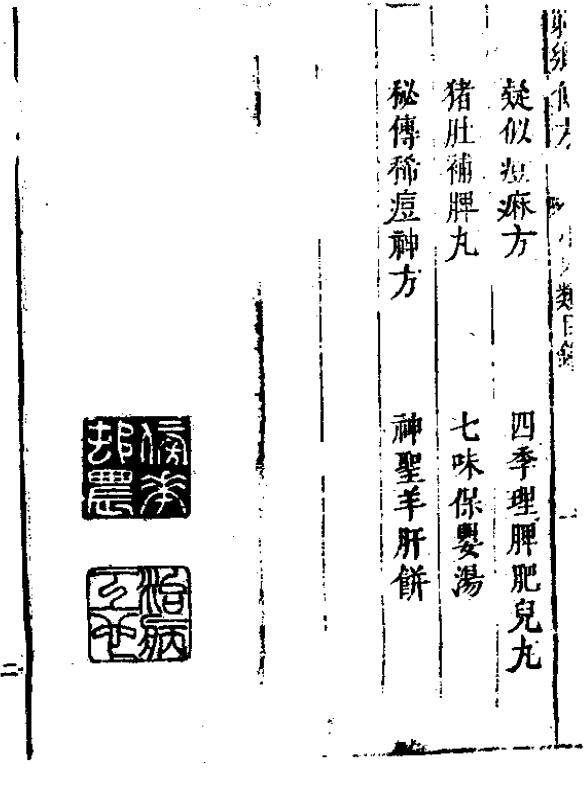 類目錄
疑似痘麻方 四季理脾肥兒丸
猪肚補脾丸 七味保嬰湯
秘傳稀痘神方 神聖羊肝餅
二